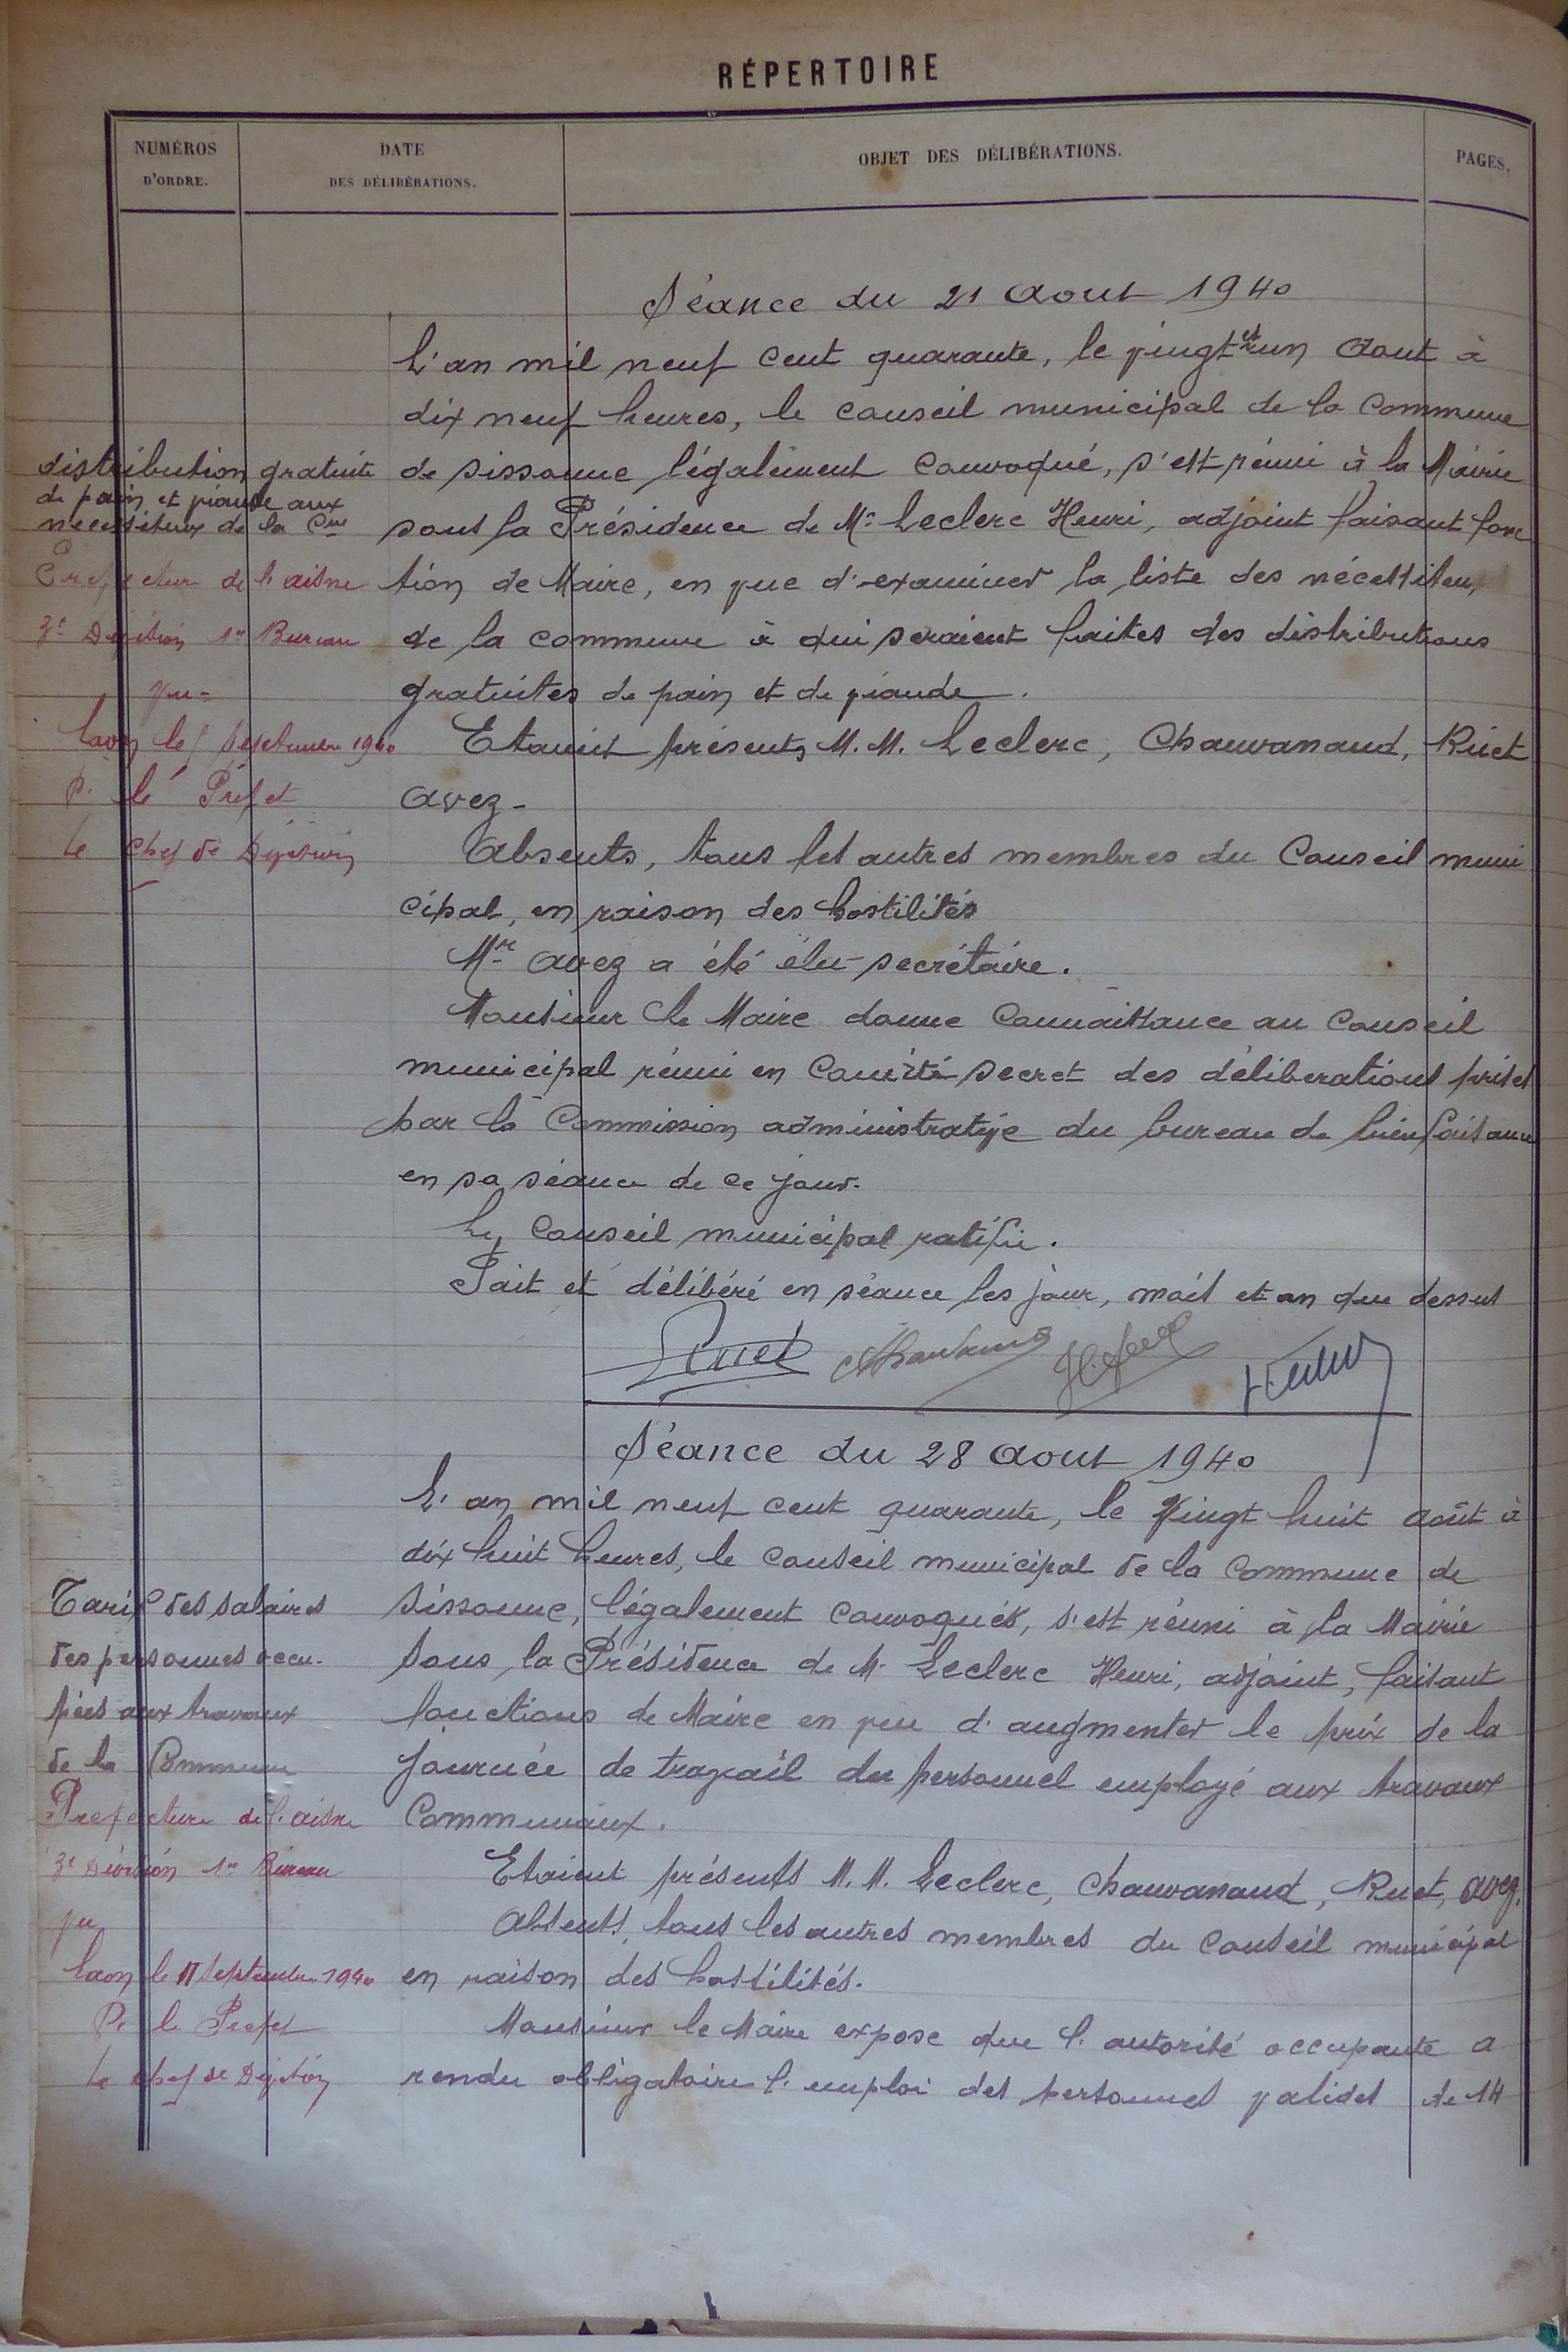 RÉPERTOIRE
NUMÉROS
D'ORDRE.
DATE
DES DÉLIBÉRATIONS.
OBJET DES DÉLIBÉRATIONS.
PAGES.
Séance du 21 Aout 1940
L'an mil neuf cent quarante, le vingt et un Aout à
dix neuf heures, le conseil municipal de la Commune
de Sissonne légalement convoqué, s'est réuni à la Mairie
sous la Présidence de Mr Leclerc Henri, adjoint faisant fonc
tion de Maire, en vue d'examiner la liste des nécessiteux
de la commune à qui seraient faites des distributions
gratuites de pain et de viande.
Etaient présents M.M. Leclerc, Chauvanaud, Ruet
Avez-
Absents, tous les autres membres du Conseil muni
cipal, en raison des hostilités
Mr Avez a été élu secrétaire.
Monsieur le Maire donne connaissance au Conseil
municipal réuni en Comité secret des délibérations prises
par la Commission administrative du bureau de bienfaisance
en sa séance de ce jour.
Le Conseil municipal ratifie.
Fait et délibéré en séance les jour, mois et an que dessus
distribution gratuite
de pain et viande aux
necessiteux de la Cne
Prefecture de l'aisne
3e Division 1er Bureau
vu-
Laon le Septembre 1940
P. le Préfet
Le Chef de Division
Ruet
Séance du 28 Aout 1940
L'an mil neuf cent quarante, le Vingt huit août à
dix huit heures, le conseil municipal de la Commune de
Sissonne, légalement convoqués, s'est réuni à la Mairie
sous la Présidence de M. Leclerc Henri, adjoint, faisant
fonctions de Maire en vue d'augmenter le prix de la
journée de travail du personnel employé aux travaux
Communaux.
Etaient présents M.M. Leclerc, Chauvanaud, Ruet, Avez.
Absents, tous les autres membres du conseil municipal
en raison des hostilités.
Monsieur le Maire expose que l'autorité occupante a
rendu obligatoire l'emploi des personnes valides de 14
Tarif des salaires
des personnes occu-
pées aux travaux
de la Commune
Prefecture de l'aisne
3e Division 1er Bureau
vu
Laon le 11 Septembre 1940
P. le Prefet
Le chef de Division